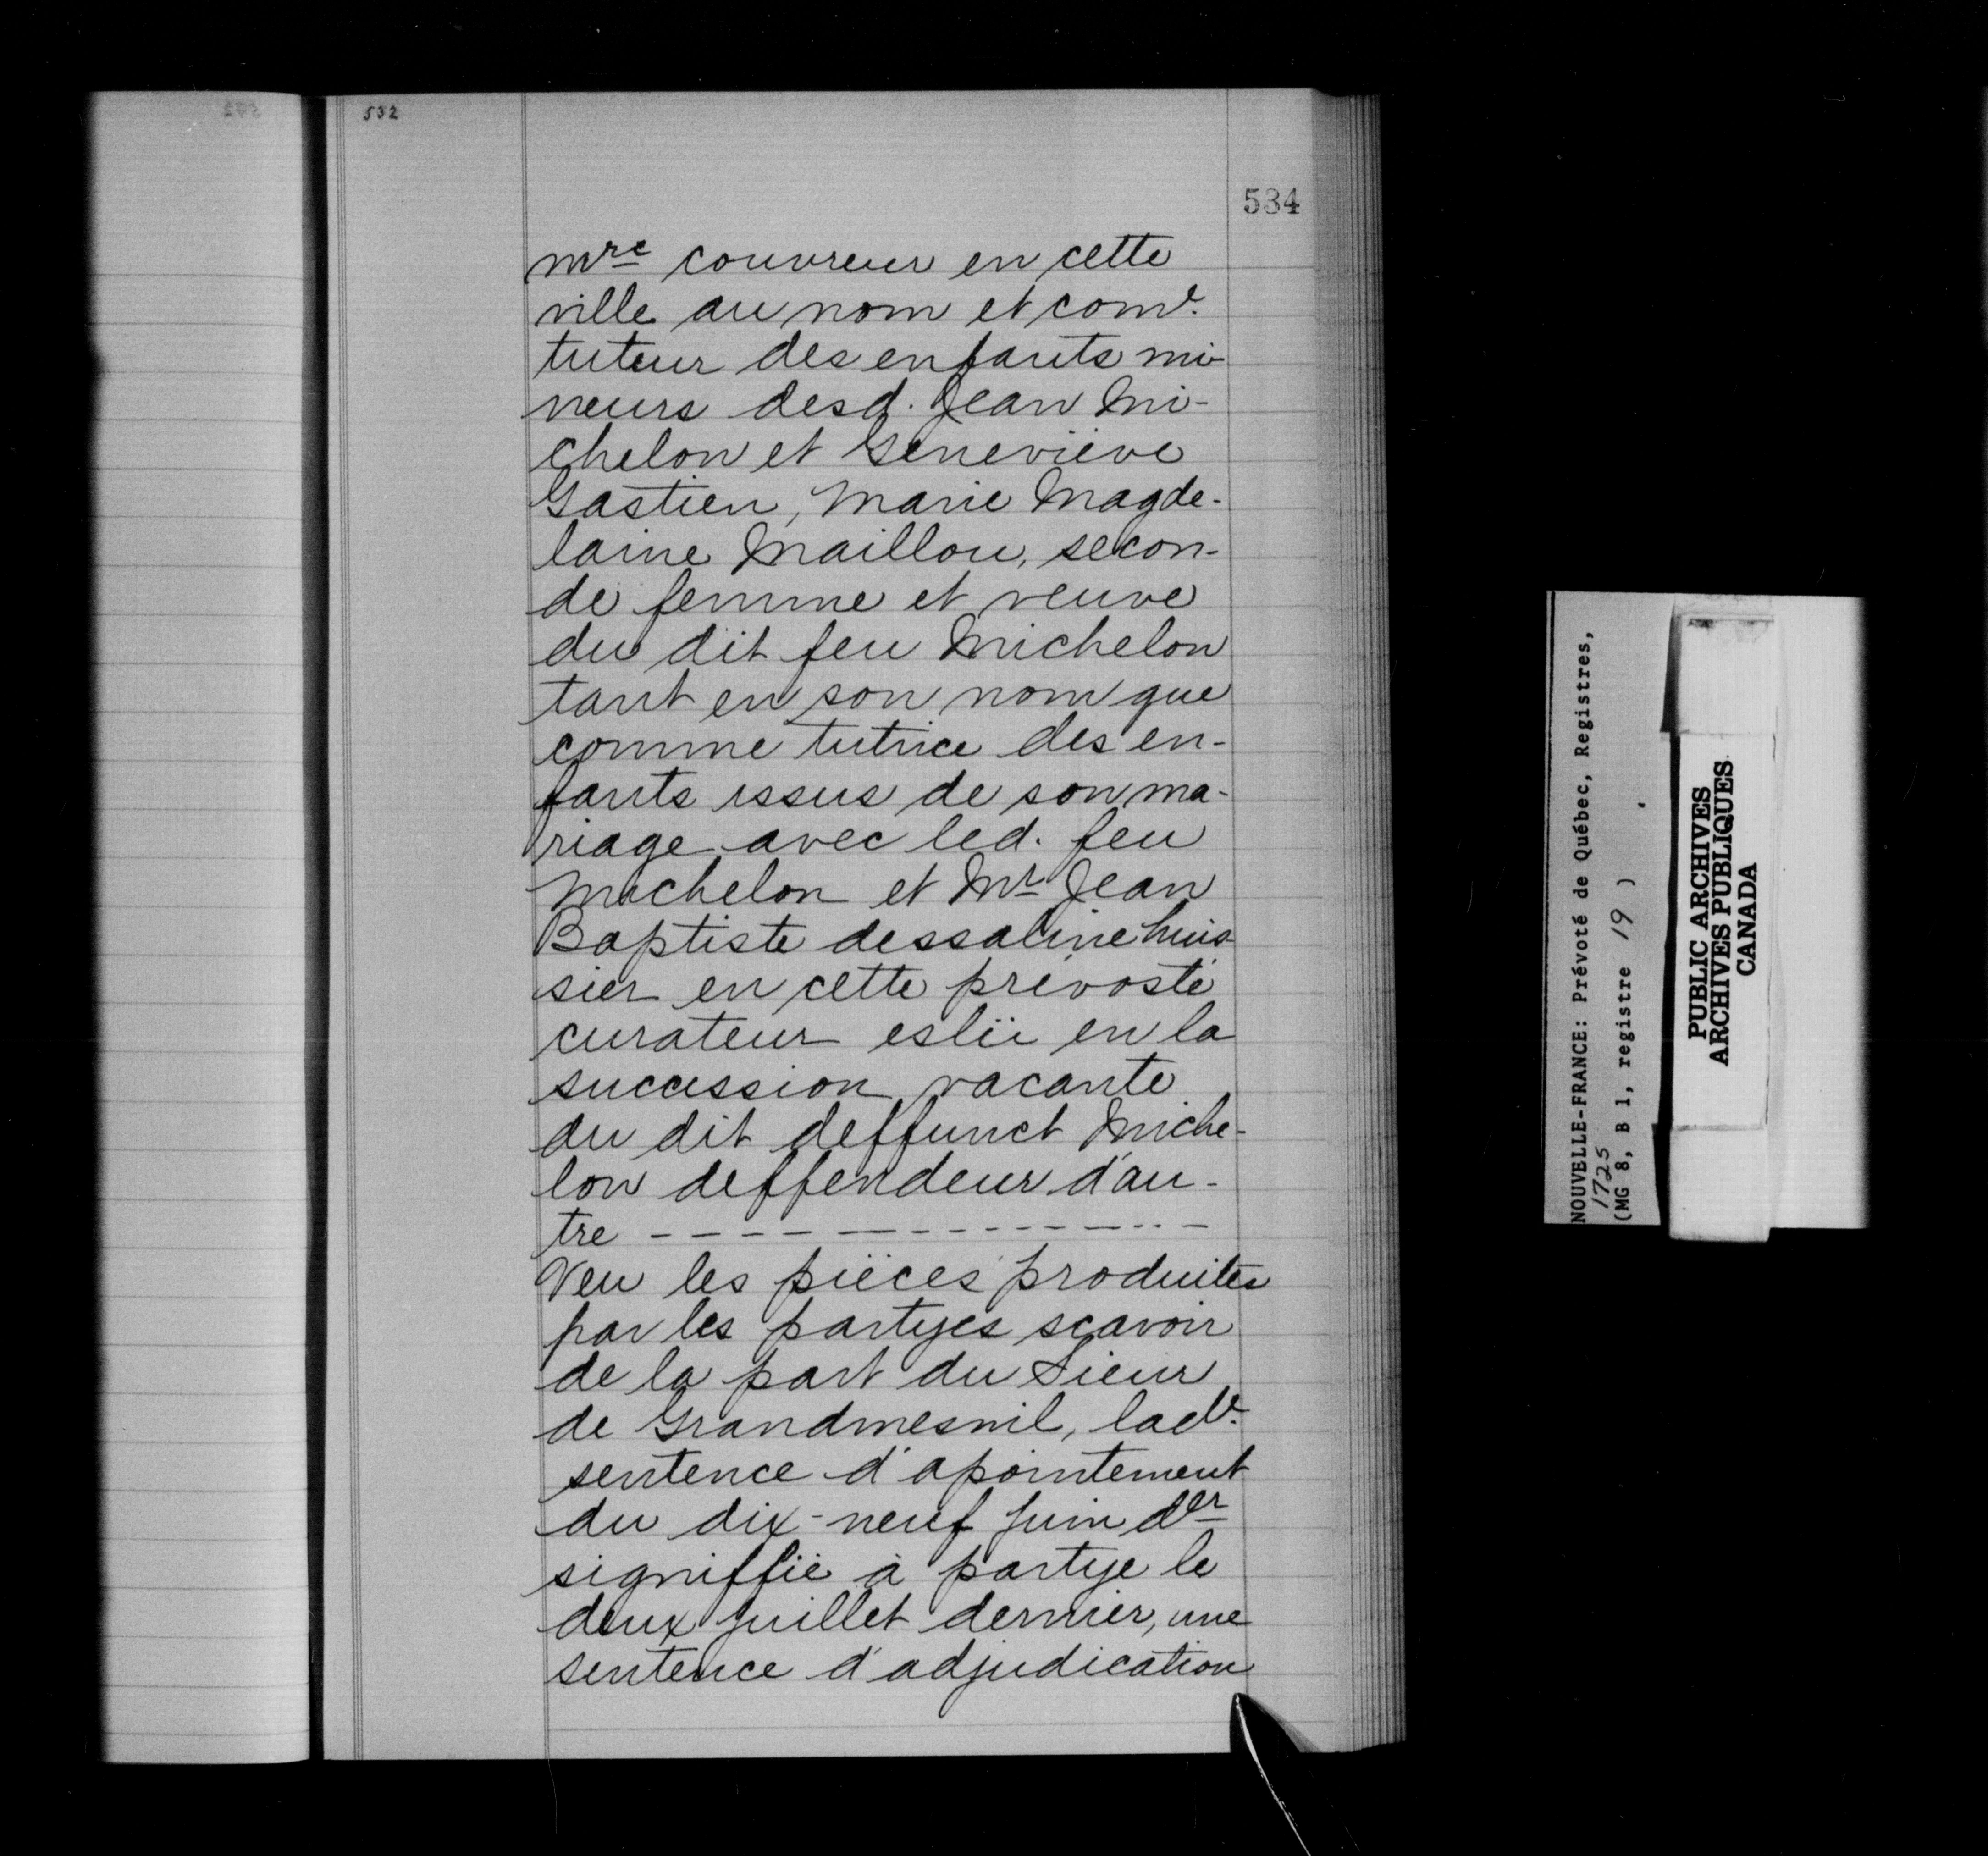 532
534
mre couvreur en cette
ville au nom et come.
tuteur des enfants mi-
neurs desd. Jean Mi-
chelon et Geneviève
Gastien, Marie Magde-
laine Maillou, secon-
de femme et veuve
du dit feu Michelon
tant en son nom que
comme tutrice des en-
fants issus de son ma-
riage avec led. feu
Michelon et Mr Jean
Baptiste dessaline huis-
sier en cette prévosté
curateur eslü en la
succession vacante
du dit deffunct Miche-
lon deffendeur d'au-
tre - - - - - - - - - - - - - -
Veu les pièces produites
par les partyes scavoir
de la part du Sieur
de Grandmesnil, lade.
sentence d'apointement
du dix-neuf juin der
signiffié à partye le
deux juillet dernier, une
sentence d'adjudication
NOUVELLE-FRANCE: Prévoté de Québec, Registres,
1725
(MG 8, B 1, registre 19 ) .
PUBLIC ARCHIVES
ARCHIVES PUBLIQUES
CANADA